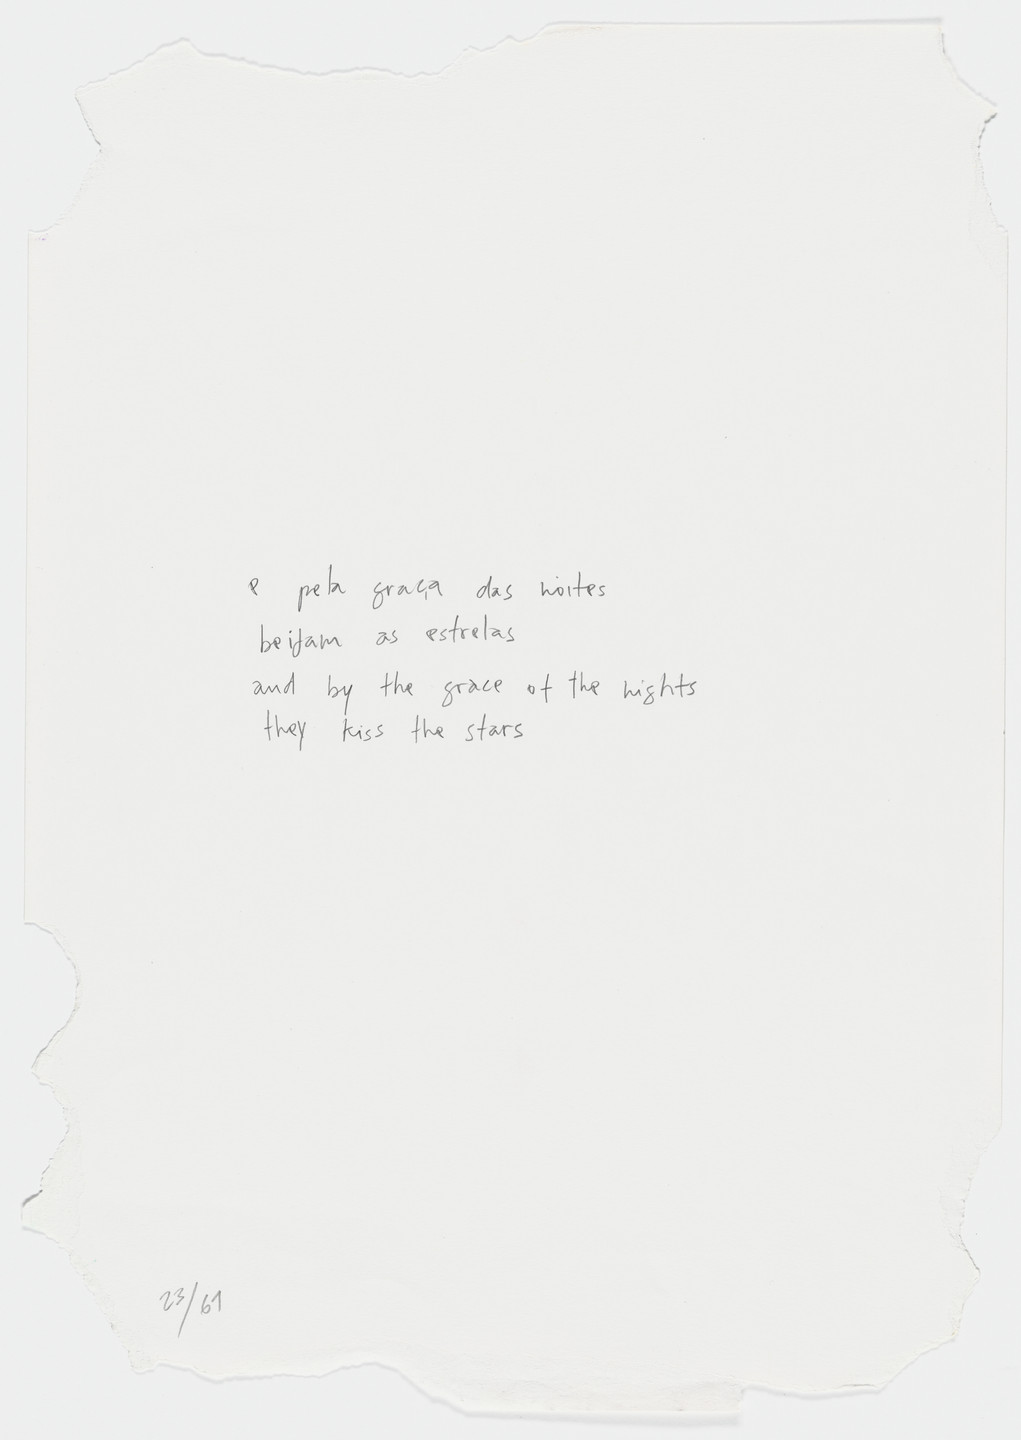 e pela graça das noites
beijam as estrelas
and by the grace of the nights
they kiss the stars
23/61